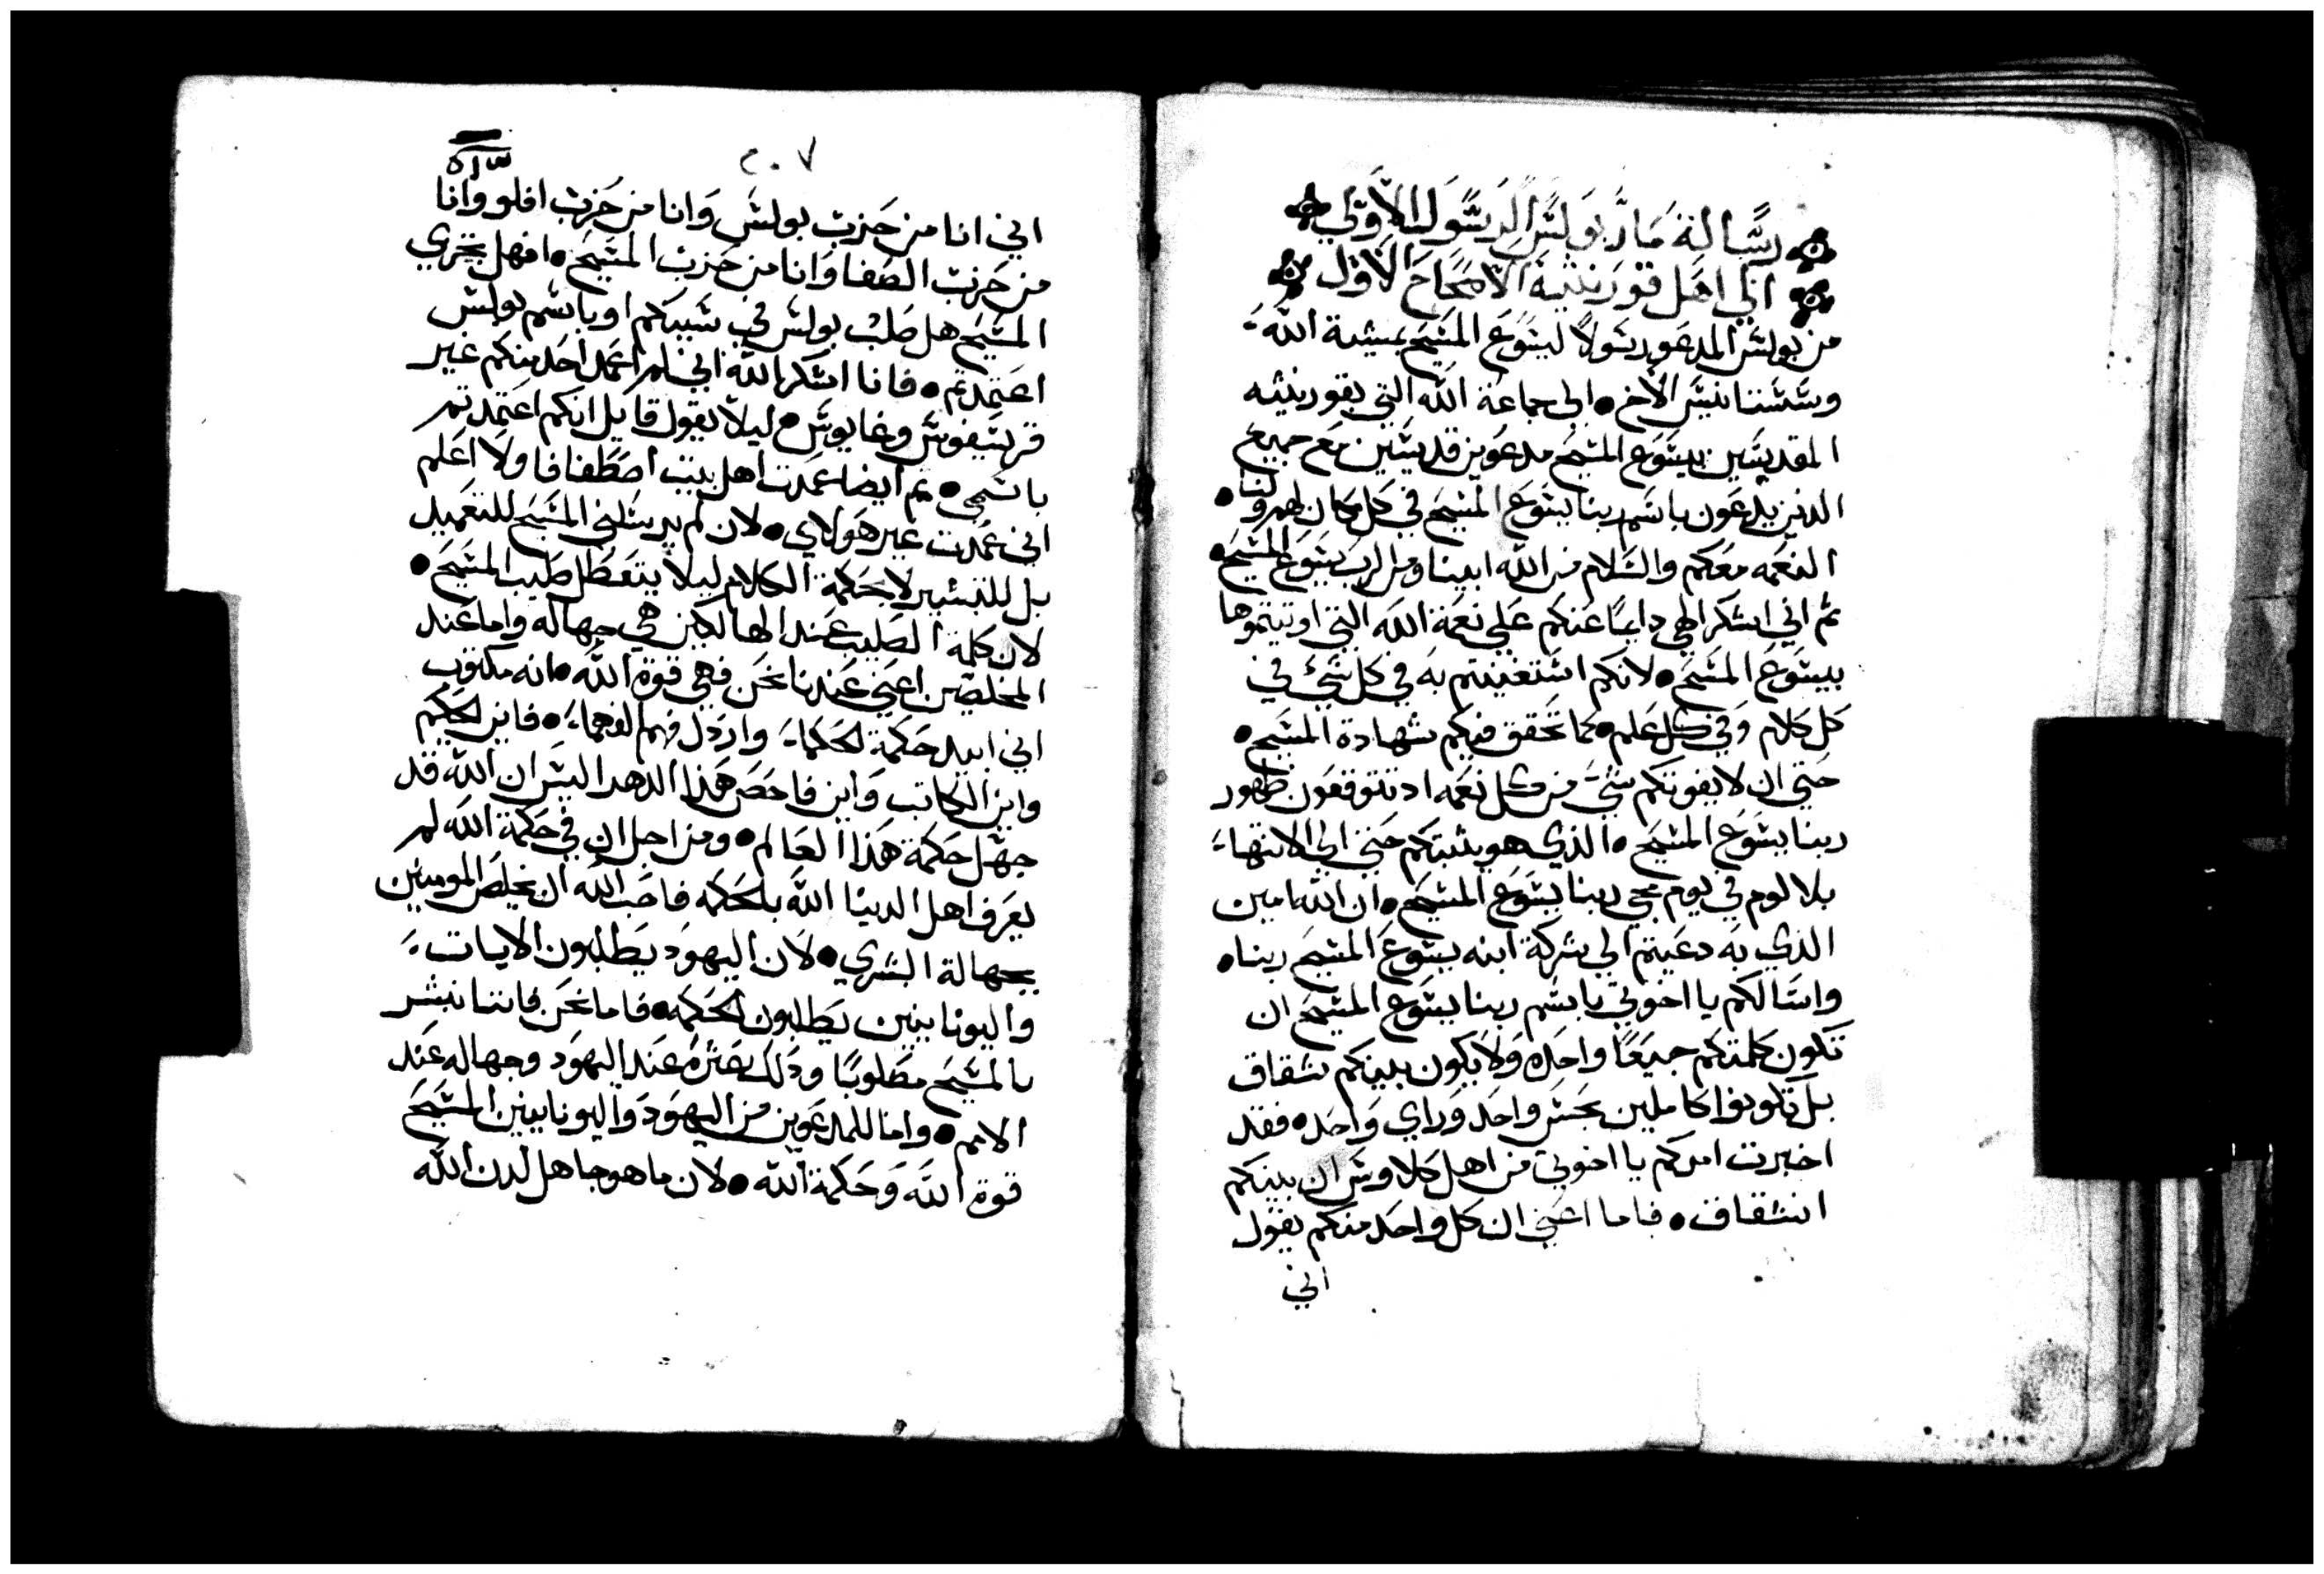 رسالة مار بولس الرسول الاولي
الي اهل قورنثية الاصحاح الاول
من بولس المدعو رسولاً ليسوع المسيح بمشية الله
وسسنانيس الاخ • الي جماعة الله التي بقورنثيه
المقدسين بيسوع المسيح مدعوين قديسين مع جميع
الذين يدعون باسم ربنا يسوع المسيح في كل مكان لهم ولنا •
النعمه معكم والسلام من الله ابينا ومن الرب يسوع المسيح •
ثم اني اشكر الهي دايماً عنكم علي نعمة الله التي اوتيتموها
بيسوع المسيح • لانكم استغنيتم به في كل شي في
كل كلام وفي كل علم • كما تحقق فيكم شهادة المسيح •
حتي ان لا يفوتكم شي من كل نعمه اد تتوقعون ظهور
ربنا يسوع المسيح • الذي هو يثبتكم حتي الي الانتهاء
بلا لوم في يوم مجي ربنا يسوع المسيح • ان الله امين
الذي به دعيتم الي شركة ابنه يسوع المسيح ربنا •
واسالكم يا اخوتي باسم ربنا يسوع المسيح ان
تكون كلمتكم جميعاً واحده ولا يكون بينكم شقاق
بل تكونوا كاملين بحس واحد وراي واحد • فقد
اخبرت امركم يا اخوتي من اهل كلاوس ان بينكم
انشقاق • فاما اعني ان كل واحد منكم يقول
اني
٢٠٧
اني انا من حزب بولس وانا من حزب افلو وانا
من حزب الصفا وانا من حزب المسيح • افهل تجزي
المسيح هل صلب بولس في سببكم او باسم بولس
اعتمدتم • فانا اشكر الله اني لم اعمد احد منكم غير
قرسيفوس وغايوس • ليلا يقول قايل انكم اعتمدتم
باسمي • ثم ايضا عمدت اهل بيت اصطفانا ولا اعلم
اني عمدت غير هولاي • لان لم يرسلني المسيح للتعميد
بل للتبشير لا بحكمة الكلام ليلا يتعطل صليب المسيح •
لان كلمة الصليب عند الهالكين هي جهاله واما عند
المخلصين اعني عندنا نحن فهي قوة الله • انه مكتوب
اني ابيد حكمة الحكماء وارذل فهم الفهماء • فاين الحكيم
واين الكاتب واين فاحص هذا الدهر اليس ان الله قد
جهل حكمة هذا العالم • ومن اجل ان في حكمة الله لم
يعرف اهل الدنيا الله بالحكمه فاحب الله ان يخلص المومنين
بجهالة البشري • لان اليهود يطلبون الايات
واليونانيين يطلبون الحكمه • فاما نحن فاننا نبشر
بالمسيح مصلوبًا وذلك بعثره عند اليهود وجهاله عند
الامم • واما للمدعوين من اليهود واليونانيين المسيح
قوة الله وحكمة الله • لان ما هو جاهل لدن الله